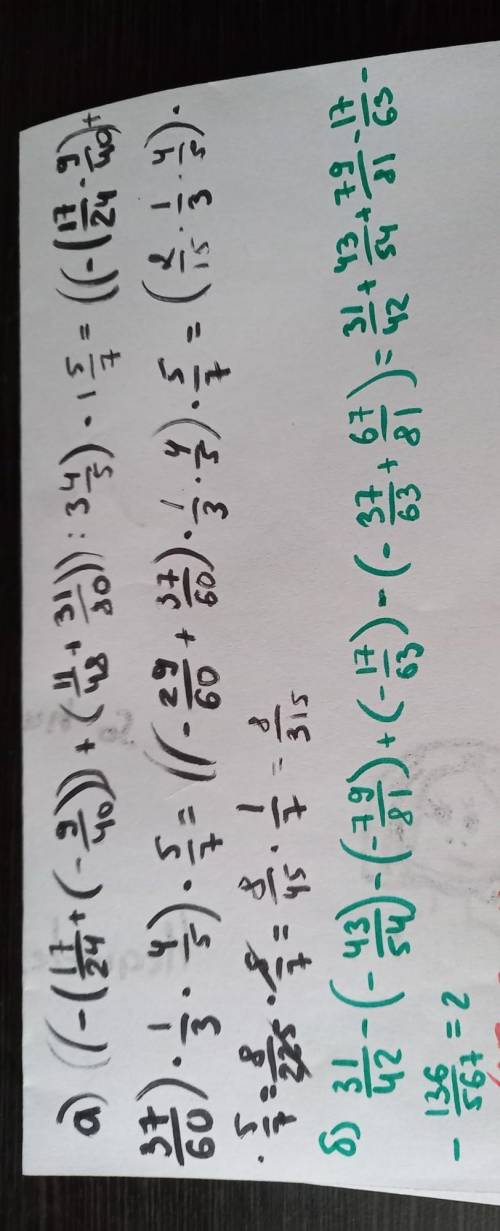 а) ((-(17/24+(-9/40)))+(11/48+31/80)):3 4/5)·1 5/7=((-(17/24-9/40)+
37/60)·1/3·4/5)·5/7=((-29/60+37/60)·1/3·4/5)·5/7=(2/15·1/3·4/5)·
·5/7=8/225·5/7=8/45·1/7=8/315
б) 31/42-(-43/54)-(-79/81)+(-17/63)-(-37/63+67/81)=31/42+43/54+79/81-17/63-
-136/567=2